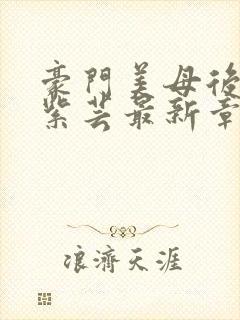 豪門美母後
紫芸最新章
浪濟天涯